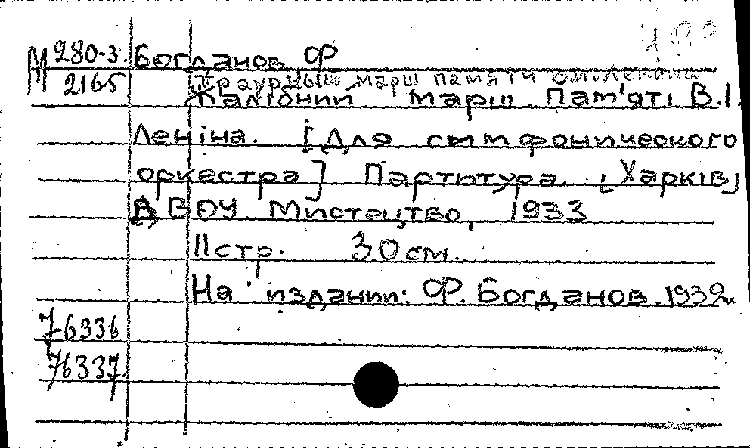 М 280-3 Богданов Ф
2165 Траурный марш памяти
Жалібний марш Пам'яті В.І.
Леніна. [Для симфонического
оркестра] Партютура. [Харків]
ДВОУ Мистецтво, 1933
11 стр. 30 см.
На издании: Ф. Богданов. 1932
76336
76337